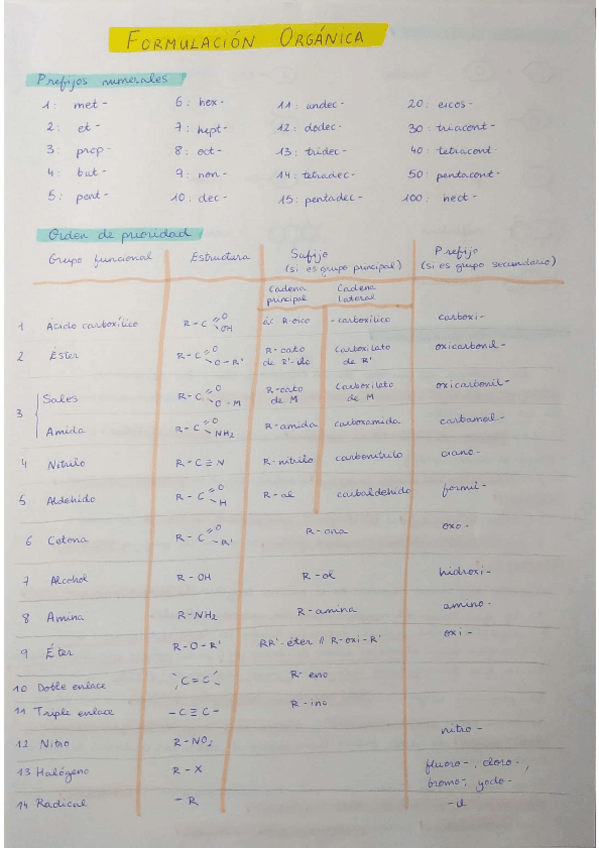 FORMULACIÓN ORGÁNICA
Prefijos numerales
1: met- 6: hex- 11: undec- 20: eicos-
2: et- 7: hept- 12: dodec- 30: triacont-
3: prop- 8: oct- 13: tridec- 40: tetracont-
4: but- 9: non- 14: tetradec- 50: pentacont-
5: pent- 10: dec- 15: pentadec- 100: hect-
Orden de prioridad
Grupo funcional Estructura Sufijo (si es grupo principal) Prefijo (si es grupo secundario)
Cadena principal Cadena lateral
1 Ácido carboxílico R-C=O OH ác R-oico -carboxílico carboxi-
2 Éster R-C=O O-R' R-oato de R'-ilo Carboxilato de R' oxicarbonil-
3 Sales R-C=O O-M R-oato de M Carboxilato de M oxicarbonil-
Amida R-C=O NH₂ R-amida carboxamida carbamoil-
4 Nitrilo R-C≡N R-nitrilo carbonitrilo ciano-
5 Aldehído R-C=O H R-al carbaldehído formil-
6 Cetona R-C=O R' R-ona oxo-
7 Alcohol R-OH R-ol hidroxi-
8 Amina R-NH₂ R-amina amino-
9 Éter R-O-R' RR'-éter // R-oxi-R' oxi-
10 Doble enlace C=C R-eno
11 Triple enlace -C≡C- R-ino
12 Nitro R-NO₂ nitro-
13 Halógeno R-X fluoro-, cloro-, bromo-, yodo-
14 Radical -R -il